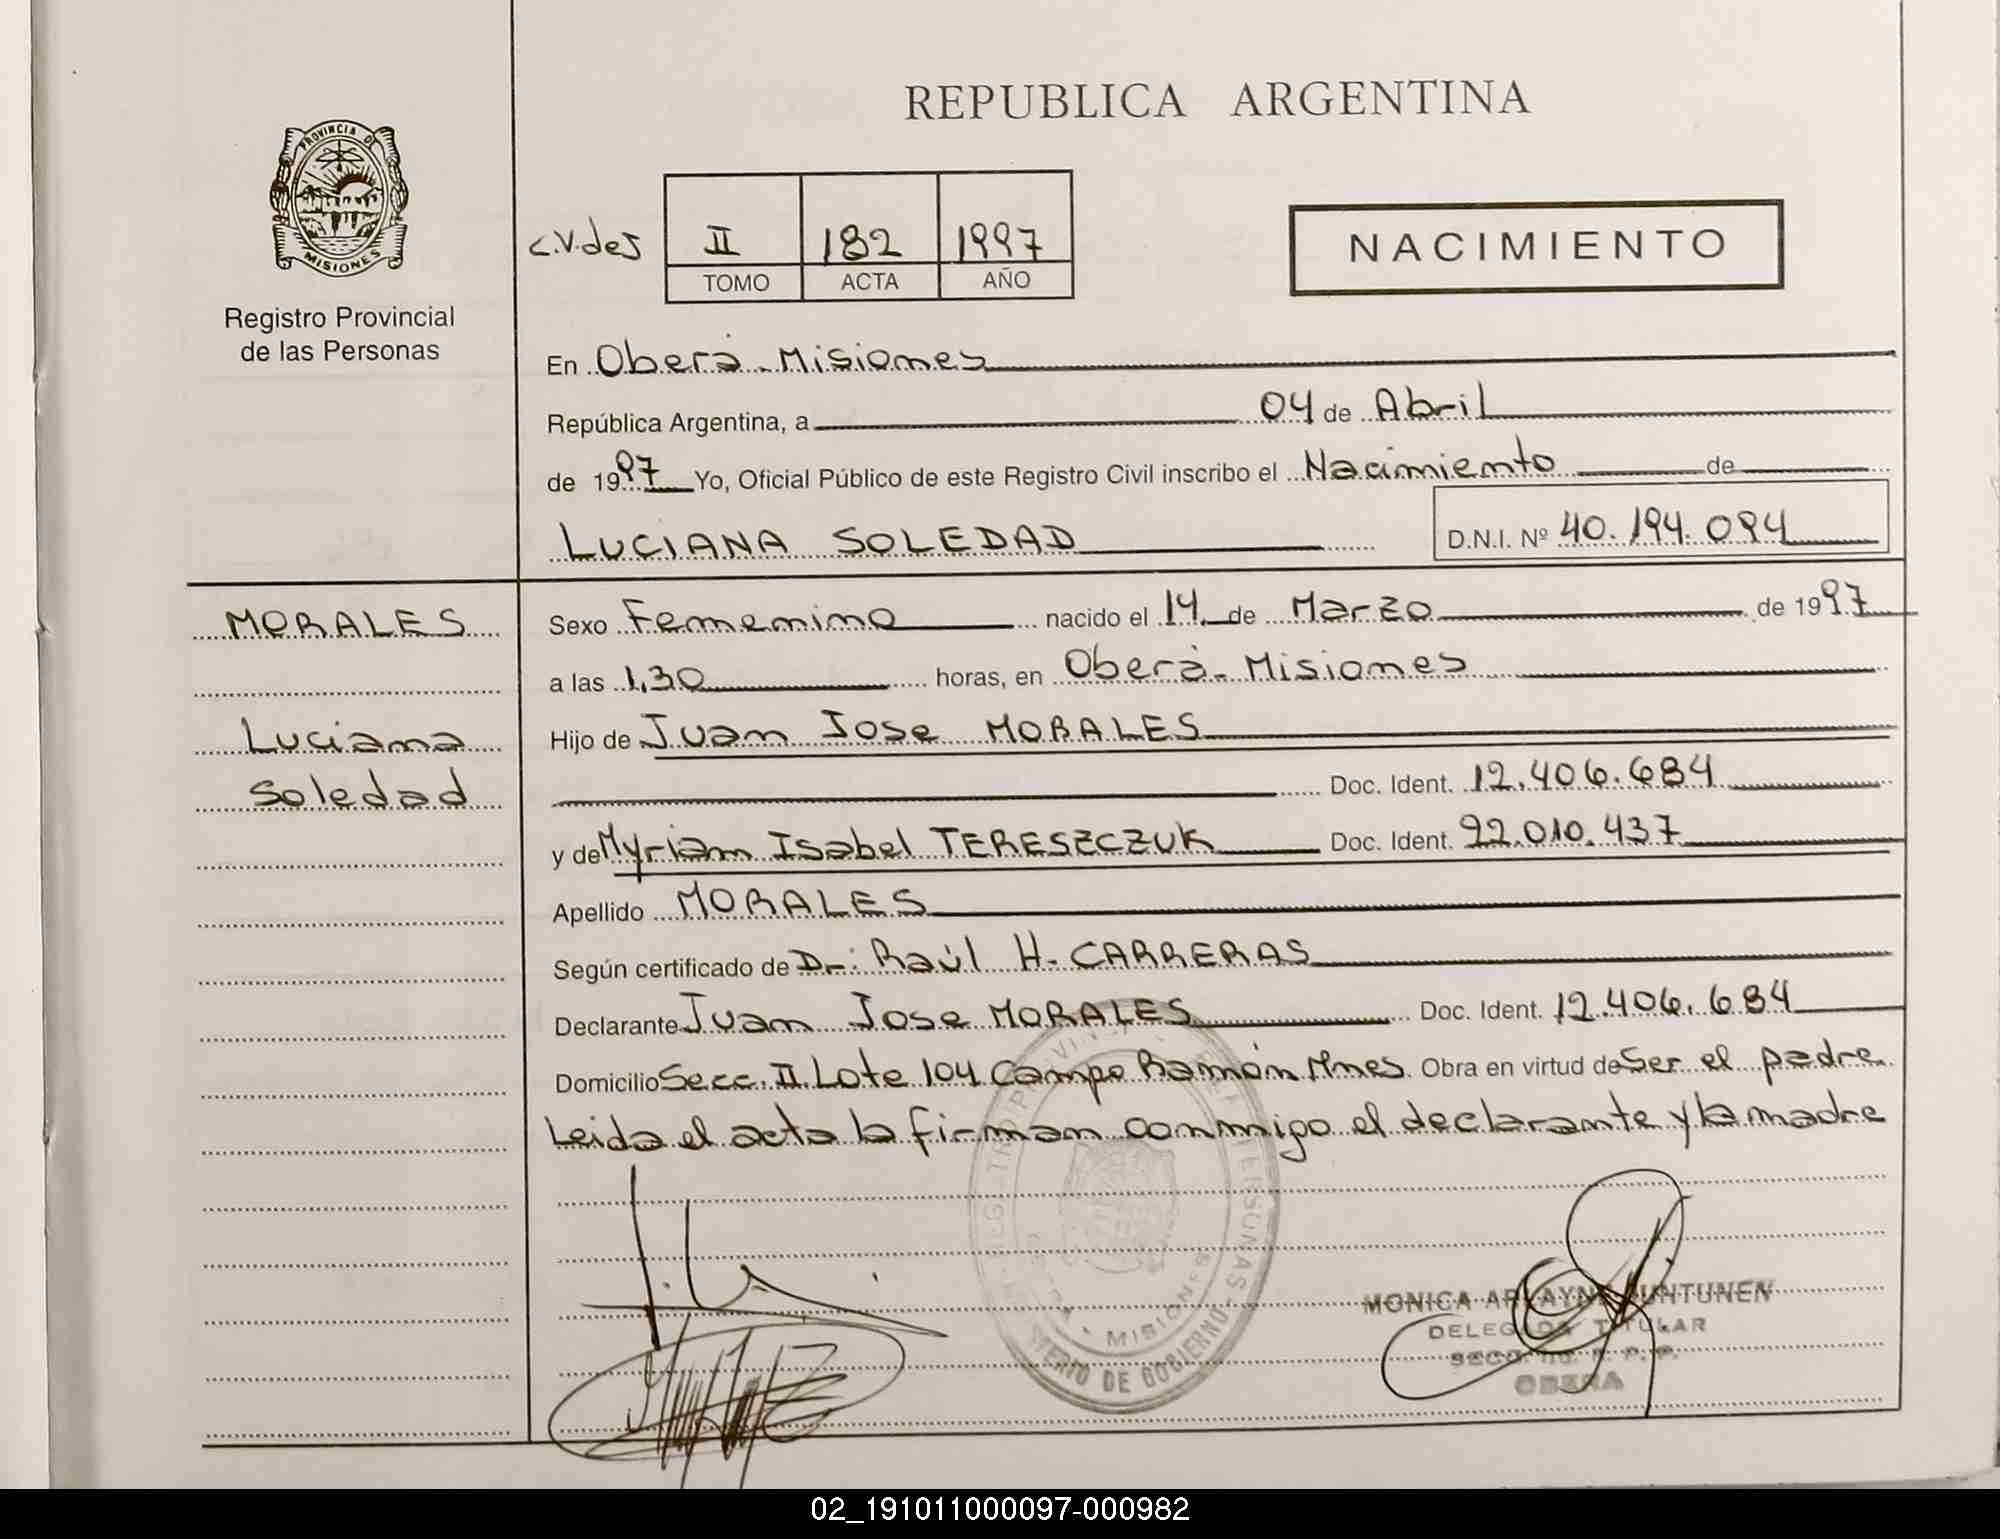 REPUBLICA ARGENTINA
PROVINCIA DE MISIONES
Registro Provincial
de las Personas
C.V.des
II 182 1997
TOMO ACTA AÑO
NACIMIENTO
En Oberá - Misiones
República Argentina, a 04 de Abril
de 1997 Yo, Oficial Público de este Registro Civil inscribo el Nacimiento de
LUCIANA SOLEDAD D.N.I. Nº 40.194.094
MORALES
Luciana
Soledad
Sexo Femenino nacido el 14 de Marzo de 1997
a las 1,30 horas, en Oberá - Misiones
Hijo de Juan Jose MORALES
Doc. Ident. 12.406.684
y de Myriam Isabel TERESZCZUK Doc. Ident. 22.010.437
Apellido MORALES
Según certificado de Dr: Raúl H. CARRERAS
Declarante Juan Jose MORALES Doc. Ident. 12.406.684
Domicilio Secc. II Lote 104 Campo Ramón Mnes. Obra en virtud de Ser el padre
Leida el acta la firman conmigo el declarante y la madre
MINISTERIO DE GOBIERNO
MISIONES
MONICA
DELEGADA TITULAR
OBERA
02_191011000097-000982